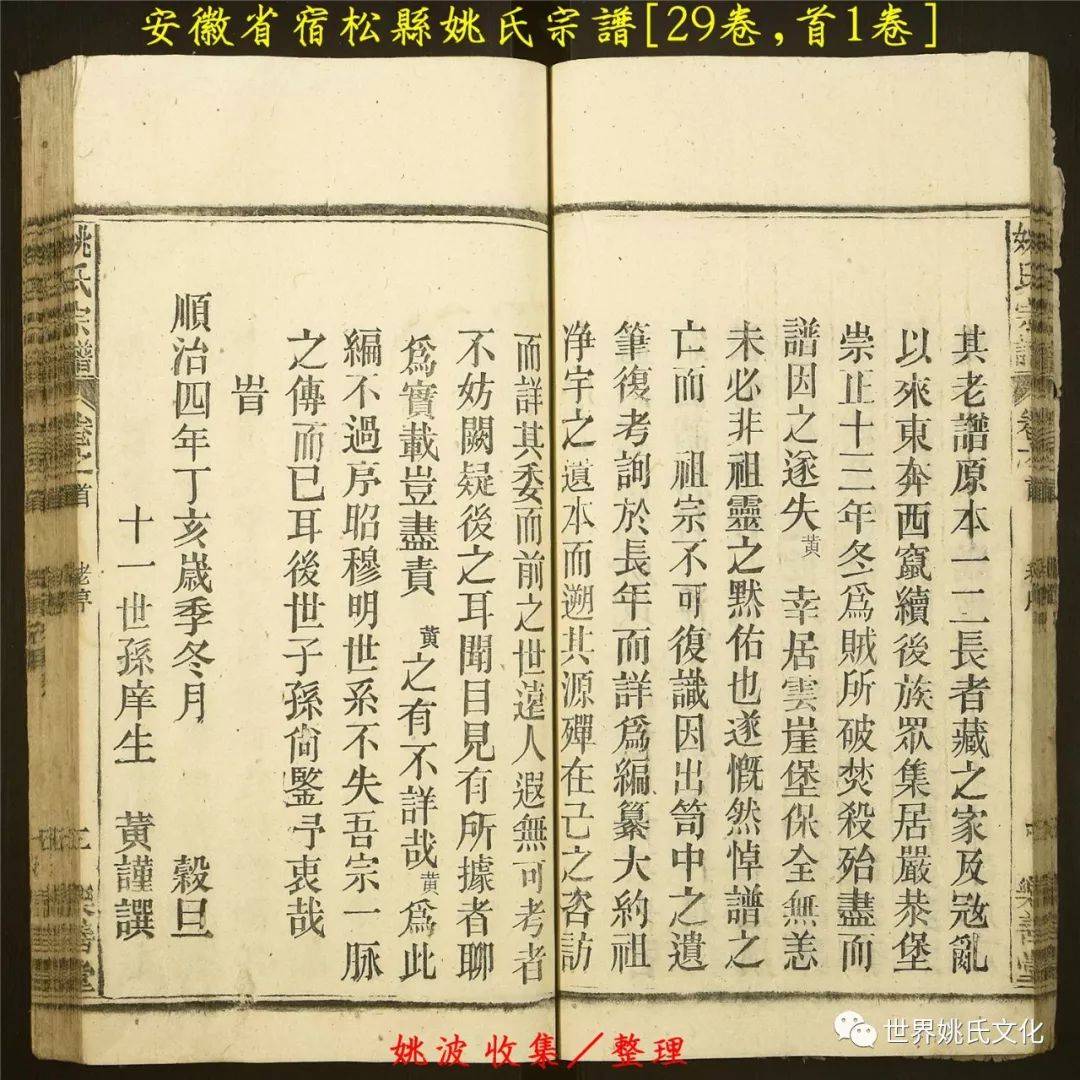 安徽省宿松縣姚氏宗譜[29卷,首1卷]
姚氏宗譜
其老譜原本一二長者藏之家及寇亂
以來東奔西竄續後族眾集居嚴恭堡
崇止十三年冬為賊所破焚殺殆盡而
譜因之遂失黃 幸居雲崖堡保全無恙
未必非祖靈之默佑也遂慨然悼譜之
亡而 祖宗不可復識因出笥中之遺
筆復考詢於長年而詳為編纂大約祖
净宇之遺本而遡其源殫在己之咨訪
而詳其委而前之世遠人遐無可考者
不妨闕疑後之耳聞目見有所據者聊
為實載豈盡責黃之有不詳哉黃為此
編不過序昭穆明世系不失吾宗一脉
之傳而已耳後世子孫尙鑒予衷哉
旹
順治四年丁亥歲季冬月 穀旦
十一世孫庠生 黃謹譔
姚氏宗譜 卷之首 老序 三 樂善堂
姚波收集/整理
世界姚氏文化